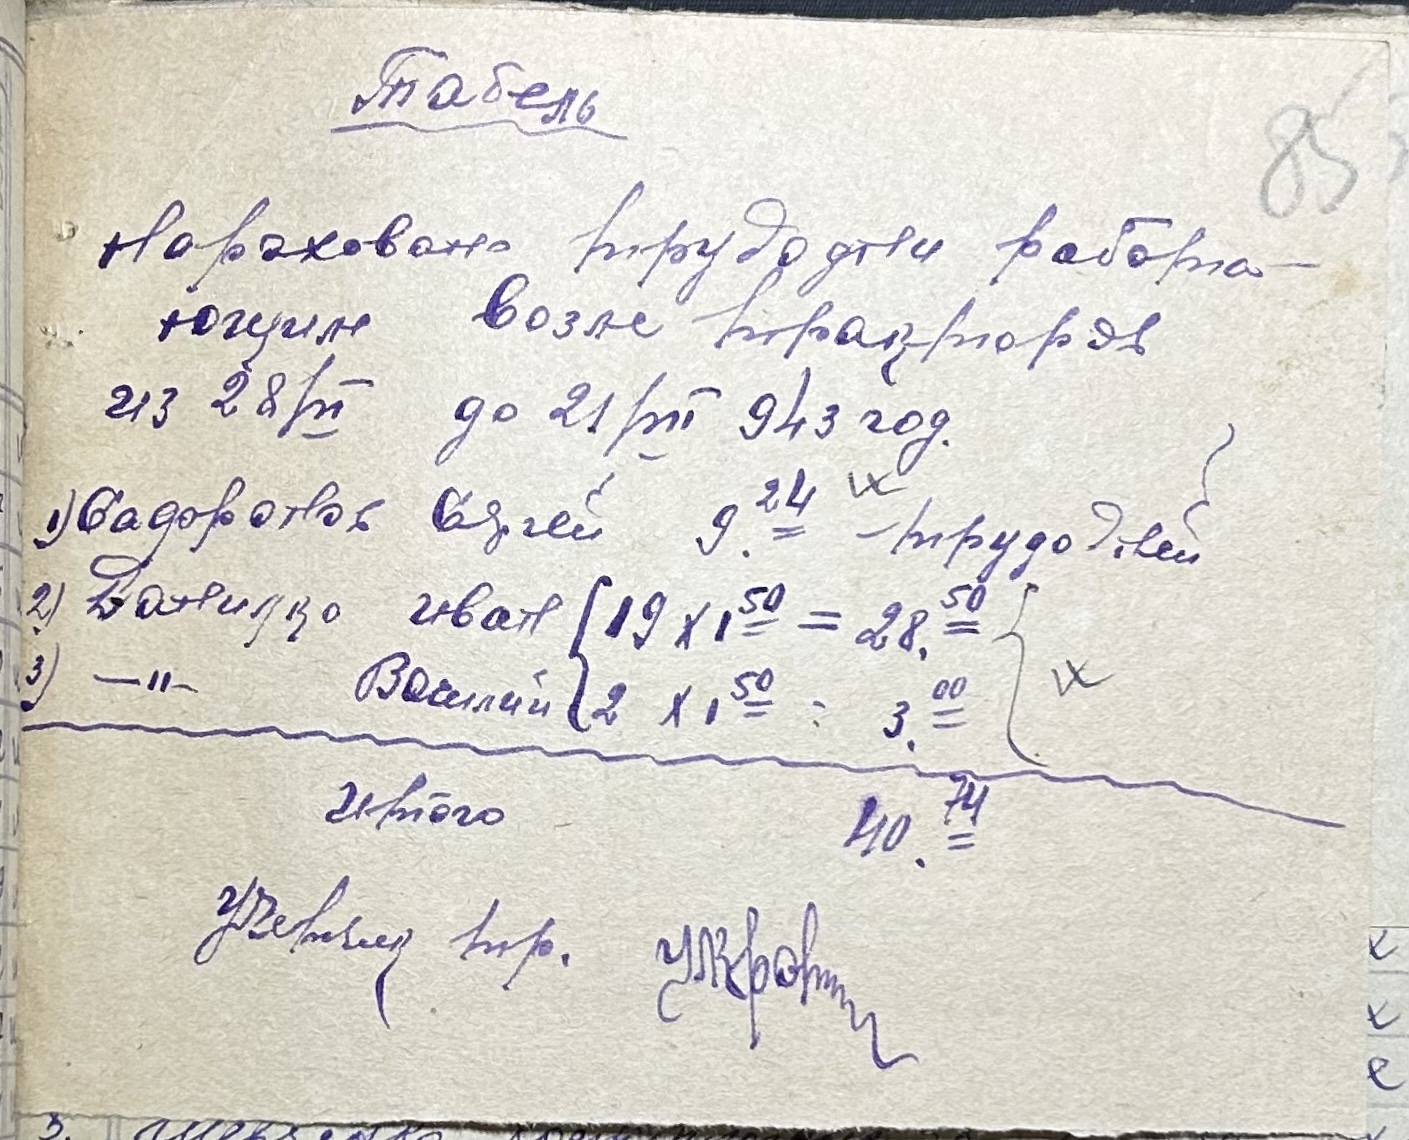 Табель
85
Нараховано трудодни работа-
ющим возле тракторов
из 28/III до 21/III 943 год.
1) Садоронов Сергей 9.24 трудодней
2) Даницко иван 19 х 1 50 = 28.50
3) —"— Василий 2 х 1 50 : 3.00
итого 40.74
Учетчик тр.